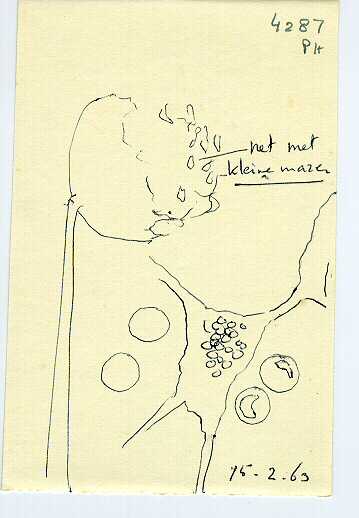 4287
PH
net met
kleine mazen
15-2-63